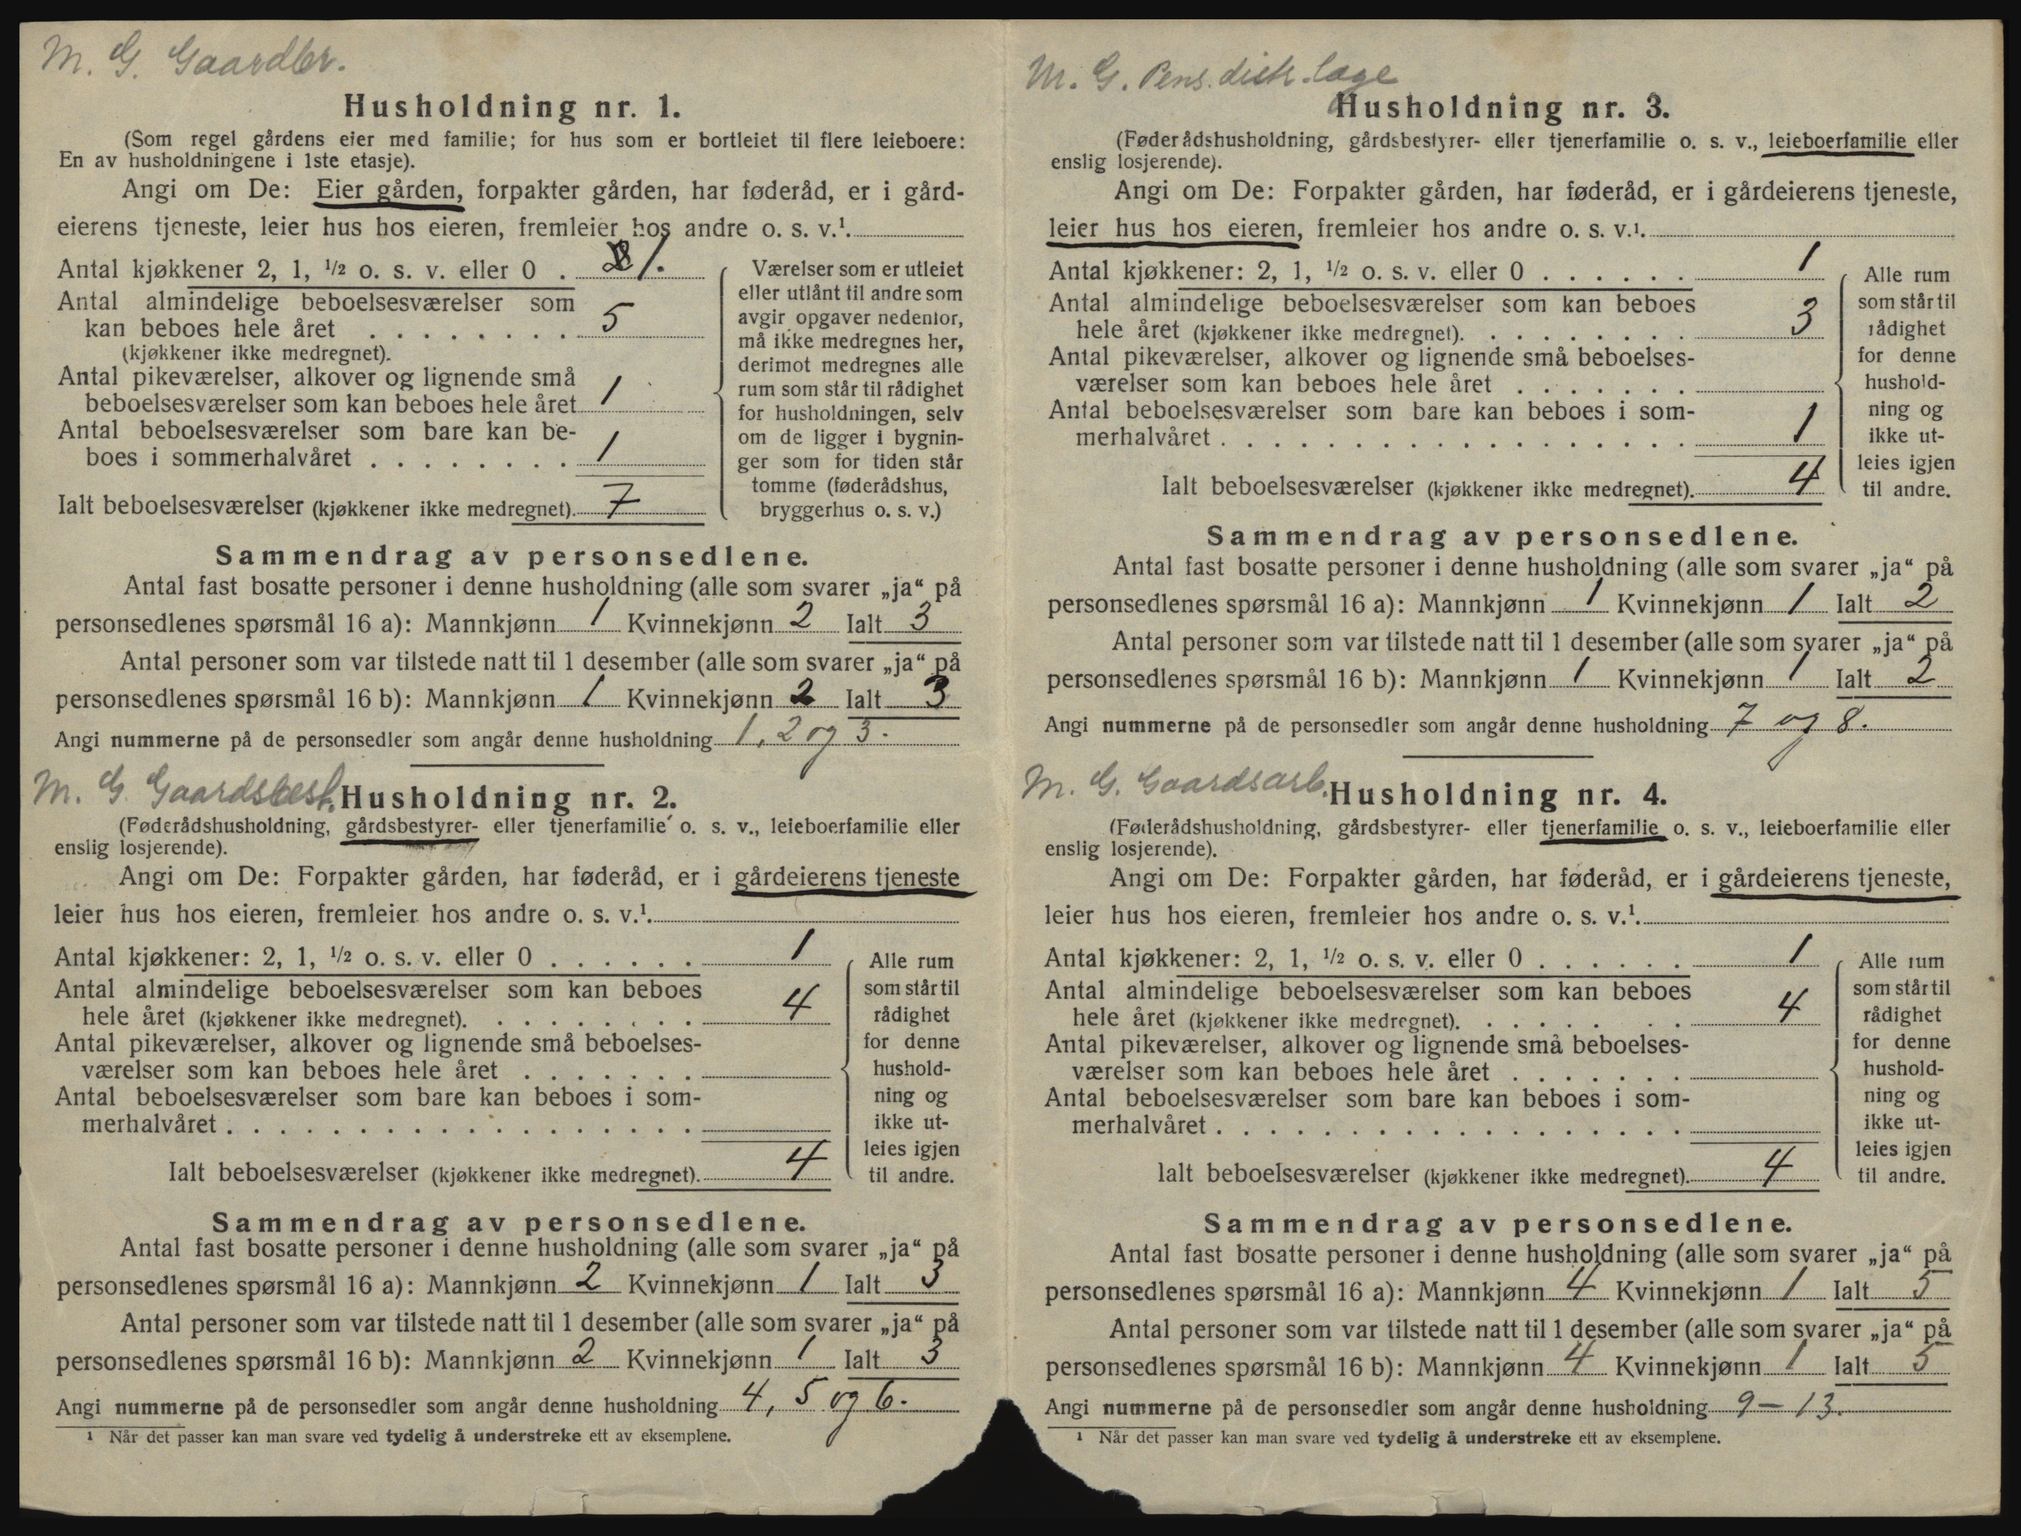 M. G. Gaardbr.
Husholdning nr. 1.
(Som regel gårdens eier med familie; for hus som er bortleiet til flere leieboere:
En av husholdningene i 1ste etasje).
Angi om De: Eier gården, forpakter gården, har føderåd, er i gård-
eierens tjeneste, leier hus hos eieren, fremleier hos andre o. s. v.¹.
Antal kjøkkener 2, 1, ½ o. s. v. eller 0 . 1.
Antal almindelige beboelsesværelser som
kan beboes hele året . . . . . . . . 5
(kjøkkener ikke medregnet).
Antal pikeværelser, alkover og lignende små
beboelsesværelser som kan beboes hele året 1
Antal beboelsesværelser som bare kan be-
boes i sommerhalvåret . . . . . . . . 1
Ialt beboelsesværelser (kjøkkener ikke medregnet). 7
Værelser som er utleiet
eller utlånt til andre som
avgir opgaver nedenfor,
må ikke medregnes her,
derimot medregnes alle
rum som står til rådighet
for husholdningen, selv
om de ligger i bygnin-
ger som for tiden står
tomme (føderådshus,
bryggerhus o. s. v.)
Sammendrag av personsedlene.
Antal fast bosatte personer i denne husholdning (alle som svarer „ja“ på
personsedlenes spørsmål 16 a): Mannkjønn 1 Kvinnekjønn 2 Ialt 3
Antal personer som var tilstede natt til 1 desember (alle som svarer „ja“ på
personsedlenes spørsmål 16 b): Mannkjønn 1 Kvinnekjønn 2 Ialt 3
Angi nummerne på de personsedler som angår denne husholdning 1, 2 og 3.
M. G. Gaardsbest.
Husholdning nr. 2.
(Føderådshusholdning, gårdsbestyrer- eller tjenerfamilie o. s. v., leieboerfamilie eller
enslig losjerende).
Angi om De: Forpakter gården, har føderåd, er i gårdeierens tjeneste
leier hus hos eieren, fremleier hos andre o. s. v.¹.
Antal kjøkkener: 2, 1, ½ o. s. v. eller 0 . . . . . . 1
Antal almindelige beboelsesværelser som kan beboes
hele året (kjøkkener ikke medregnet). . . . . . . . . 4
Antal pikeværelser, alkover og lignende små beboelses-
værelser som kan beboes hele året . . . . . . .
Antal beboelsesværelser som bare kan beboes i som-
merhalvåret . . . . . . . . . . . . . . . . . .
Ialt beboelsesværelser (kjøkkener ikke medregnet). 4
Alle rum
som står til
rådighet
for denne
hushold-
ning og
ikke ut-
leies igjen
til andre.
Sammendrag av personsedlene.
Antal fast bosatte personer i denne husholdning (alle som svarer „ja“ på
personsedlenes spørsmål 16 a): Mannkjønn 2 Kvinnekjønn 1 Ialt 3
Antal personer som var tilstede natt til 1 desember (alle som svarer „ja“ på
personsedlenes spørsmål 16 b): Mannkjønn 2 Kvinnekjønn 1 Ialt 3
Angi nummerne på de personsedler som angår denne husholdning 4, 5 og 6.
¹ Når det passer kan man svare ved tydelig å understreke ett av eksemplene.
M. G. Pens. distr. læge
Husholdning nr. 3.
(Føderådshusholdning, gårdsbestyrer- eller tjenerfamilie o. s. v., leieboerfamilie eller
enslig losjerende).
Angi om De: Forpakter gården, har føderåd, er i gårdeierens tjeneste,
leier hus hos eieren, fremleier hos andre o. s. v.¹.
Antal kjøkkener: 2, 1, ½ o. s. v. eller 0 . . . . . . 1
Antal almindelige beboelsesværelser som kan beboes
hele året (kjøkkener ikke medregnet). . . . . . . . . 3
Antal pikeværelser, alkover og lignende små beboelses-
værelser som kan beboes hele året . . . . . . .
Antal beboelsesværelser som bare kan beboes i som-
merhalvåret . . . . . . . . . . . . . . . . . . 1
Ialt beboelsesværelser (kjøkkener ikke medregnet). 4
Alle rum
som står til
rådighet
for denne
hushold-
ning og
ikke ut-
leies igjen
til andre.
Sammendrag av personsedlene.
Antal fast bosatte personer i denne husholdning (alle som svarer „ja“ på
personsedlenes spørsmål 16 a): Mannkjønn 1 Kvinnekjønn 1 Ialt 2
Antal personer som var tilstede natt til 1 desember (alle som svarer „ja“ på
personsedlenes spørsmål 16 b): Mannkjønn 1 Kvinnekjønn 1 Ialt 2
Angi nummerne på de personsedler som angår denne husholdning 7 og 8.
M. G. Gaardsarb.
Husholdning nr. 4.
(Føderådshusholdning, gårdsbestyrer- eller tjenerfamilie o. s. v., leieboerfamilie eller
enslig losjerende).
Angi om De: Forpakter gården, har føderåd, er i gårdeierens tjeneste,
leier hus hos eieren, fremleier hos andre o. s. v.¹.
Antal kjøkkener: 2, 1, ½ o. s. v. eller 0 . . . . . . 1
Antal almindelige beboelsesværelser som kan beboes
hele året (kjøkkener ikke medregnet). . . . . . . . . 4
Antal pikeværelser, alkover og lignende små beboelses-
værelser som kan beboes hele året . . . . . . .
Antal beboelsesværelser som bare kan beboes i som-
merhalvåret . . . . . . . . . . . . . . . . . .
Ialt beboelsesværelser (kjøkkener ikke medregnet). 4
Alle rum
som står til
rådighet
for denne
hushold-
ning og
ikke ut-
leies igjen
til andre.
Sammendrag av personsedlene.
Antal fast bosatte personer i denne husholdning (alle som svarer „ja“ på
personsedlenes spørsmål 16 a): Mannkjønn 4 Kvinnekjønn 1 Ialt 5
Antal personer som var tilstede natt til 1 desember (alle som svarer „ja“ på
personsedlenes spørsmål 16 b): Mannkjønn 4 Kvinnekjønn 1 Ialt 5
Angi nummerne på de personsedler som angår denne husholdning 9 – 13.
¹ Når det passer kan man svare ved tydelig å understreke ett av eksemplene.